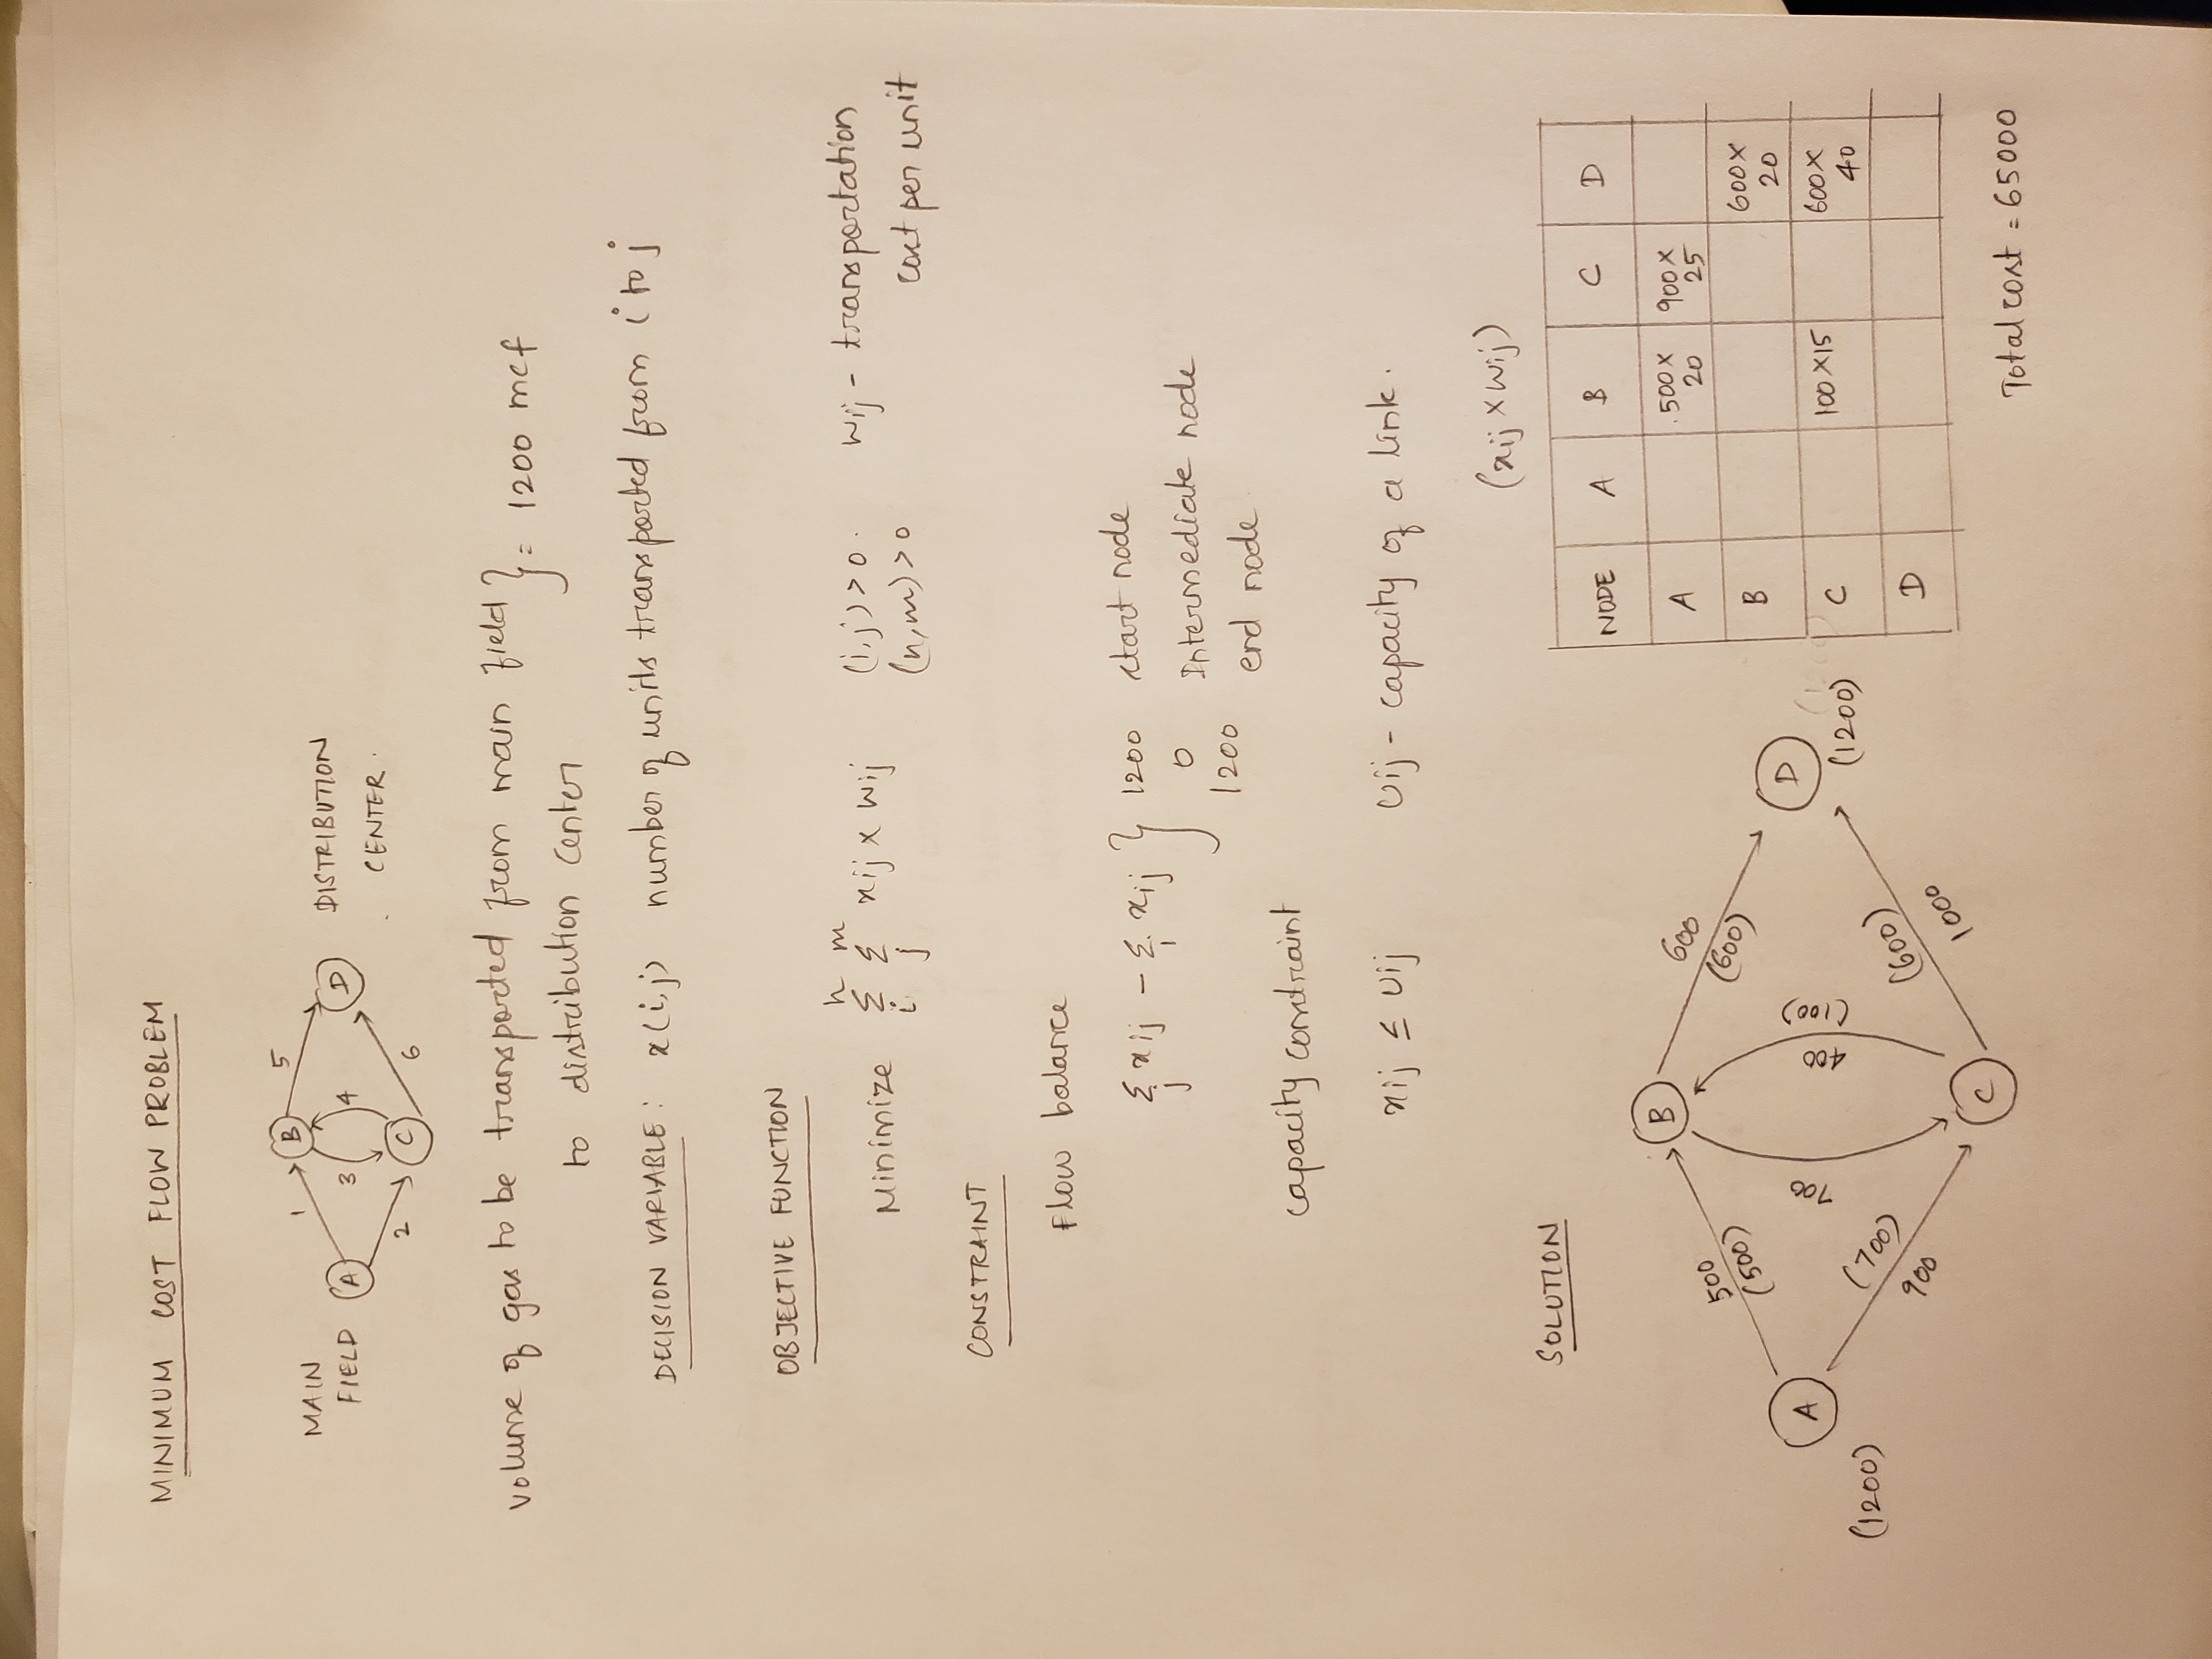 MINIMUM COST FLOW PROBLEM
1 B 5
MAIN
FIELD A 3 4 D DISTRIBUTION
CENTER.
2 C 6
volume of gas to be transported from main field } = 1200 mcf
to distribution center
DECISION VARIABLE: x(i,j) number of units transported from i to j
OBJECTIVE FUNCTION
n m
Minimize Σ Σ xij x wij (i,j)>0. wij - transportation
i j (n,m)>0 cost per unit
CONSTRAINT
Flow balance
Σ xij - Σ xij } 1200 start node
j i
0 Intermediate node
1200 end node
capacity constraint
xij ≤ Uij Uij - capacity of a link.
(xij x wij)
SOLUTION
B
500
(500)
600
(600)
A
(1200)
700
400
(100)
D
(1200)
(700)
900
(600)
1000
C
NODE A B C D
A 500x 20 900x 25
B 600x 20
C 100x15 600x 40
D
Total cost = 65000